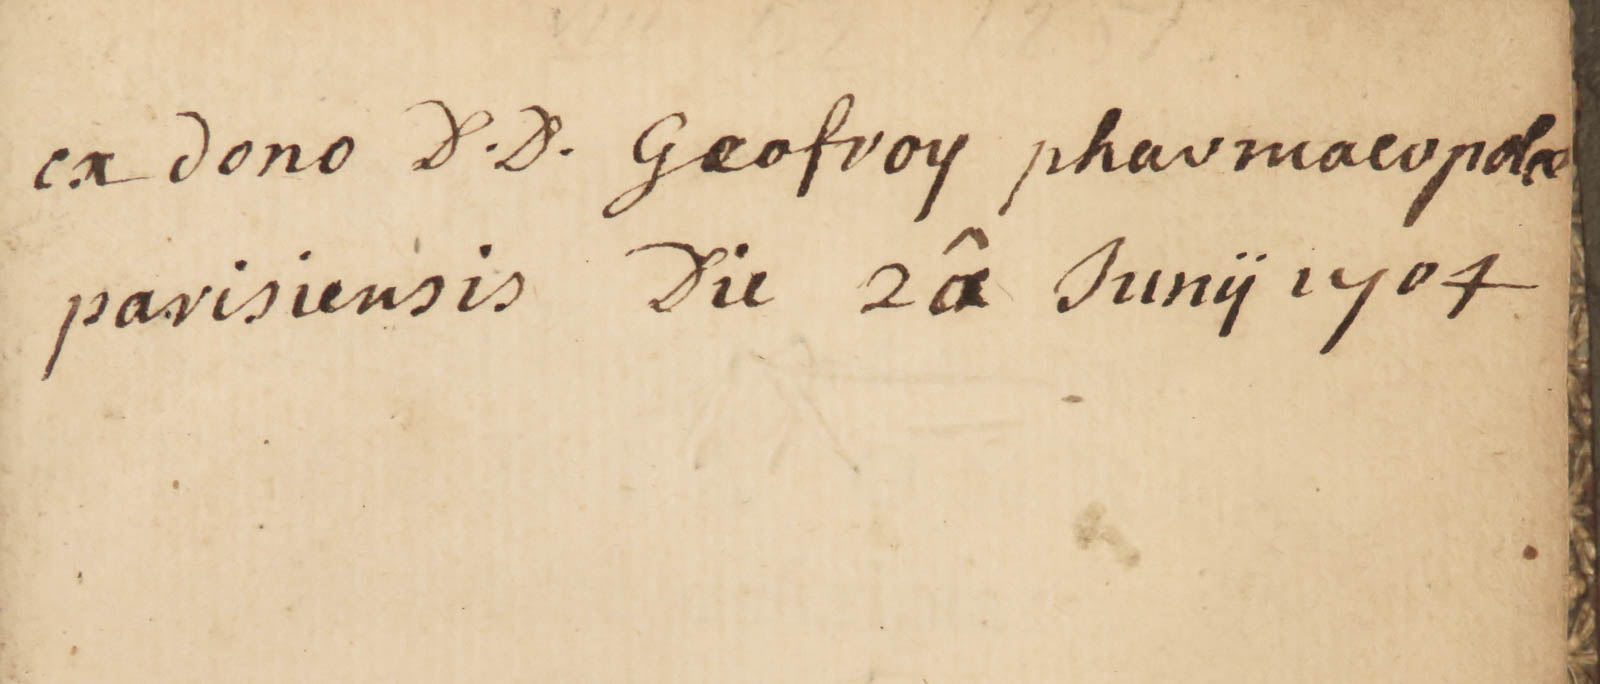 ex dono D.D. Geofroy pharmacopolæ
parisiensis Die 2â Junij 1704